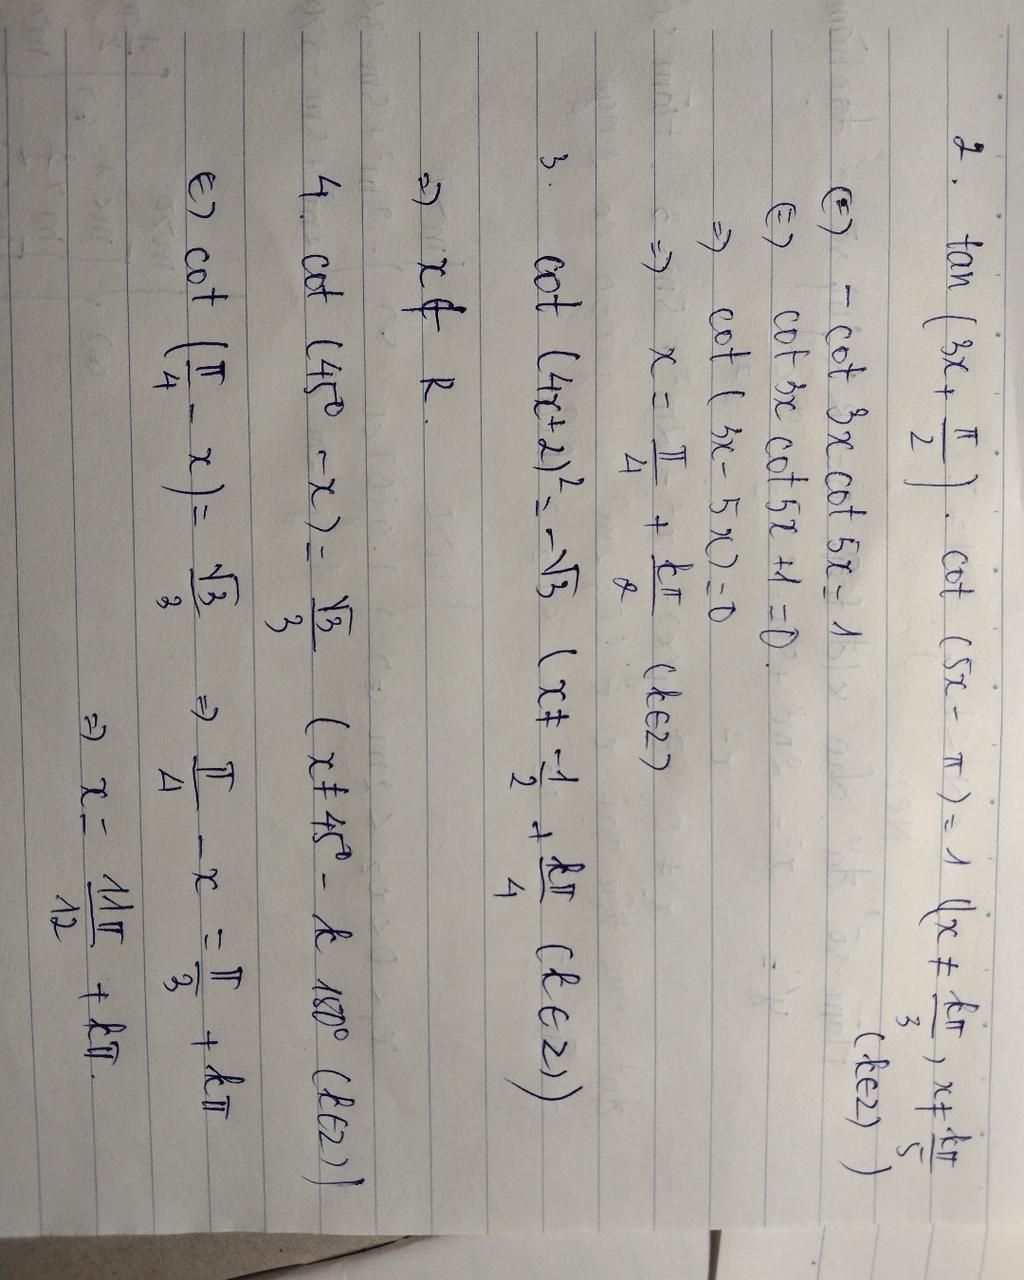 2. tan (3x + π/2) . cot (5x - π) = 1 (x ≠ kπ/3, x ≠ kπ/5
(k∈Z) )
(=) - cot 3x cot 5x = 1
(=) cot 3x cot 5x + 1 = 0.
=) cot (3x - 5x) = 0
=) x = π/4 + kπ/2 (k∈Z)
3. cot (4x+2)² = -√3 (x ≠ -1/2 + kπ/4 (k∈Z))
=) x ∉ R.
4. cot (45° - x) = √3/3 (x ≠ 45° - k 180° (k∈Z))
(=) cot (π/4 - x) = √3/3 =) π/4 - x = π/3 + kπ
=) x = 11π/12 + kπ.